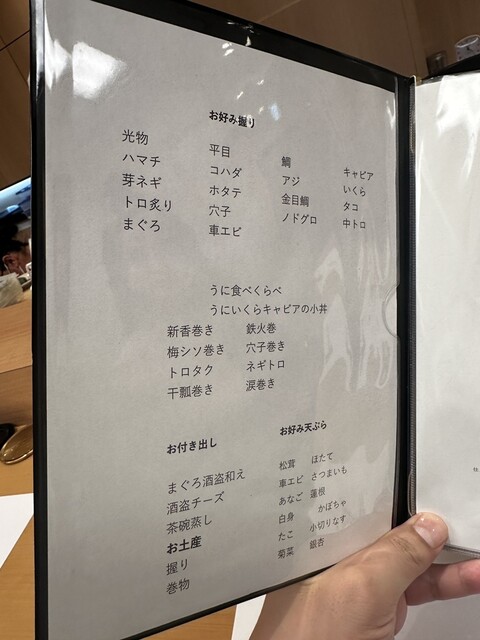 お好み握り
光物 平目 鯛 キャビア
ハマチ コハダ アジ いくら
芽ネギ ホタテ 金目鯛 タコ
トロ炙り 穴子 ノドグロ 中トロ
まぐろ 車エビ
うに食べくらべ
うにいくらキャビアの小丼
新香巻き 鉄火巻
梅シソ巻き 穴子巻き
トロタク ネギトロ
干瓢巻き 涙巻き
お付き出し
まぐろ酒盗和え
酒盗チーズ
茶碗蒸し
お土産
握り
巻物
お好み天ぷら
松茸 ほたて
車エビ さつまいも
あなご 蓮根
白身 かぼちゃ
たこ 小切りなす
菊菜 銀杏